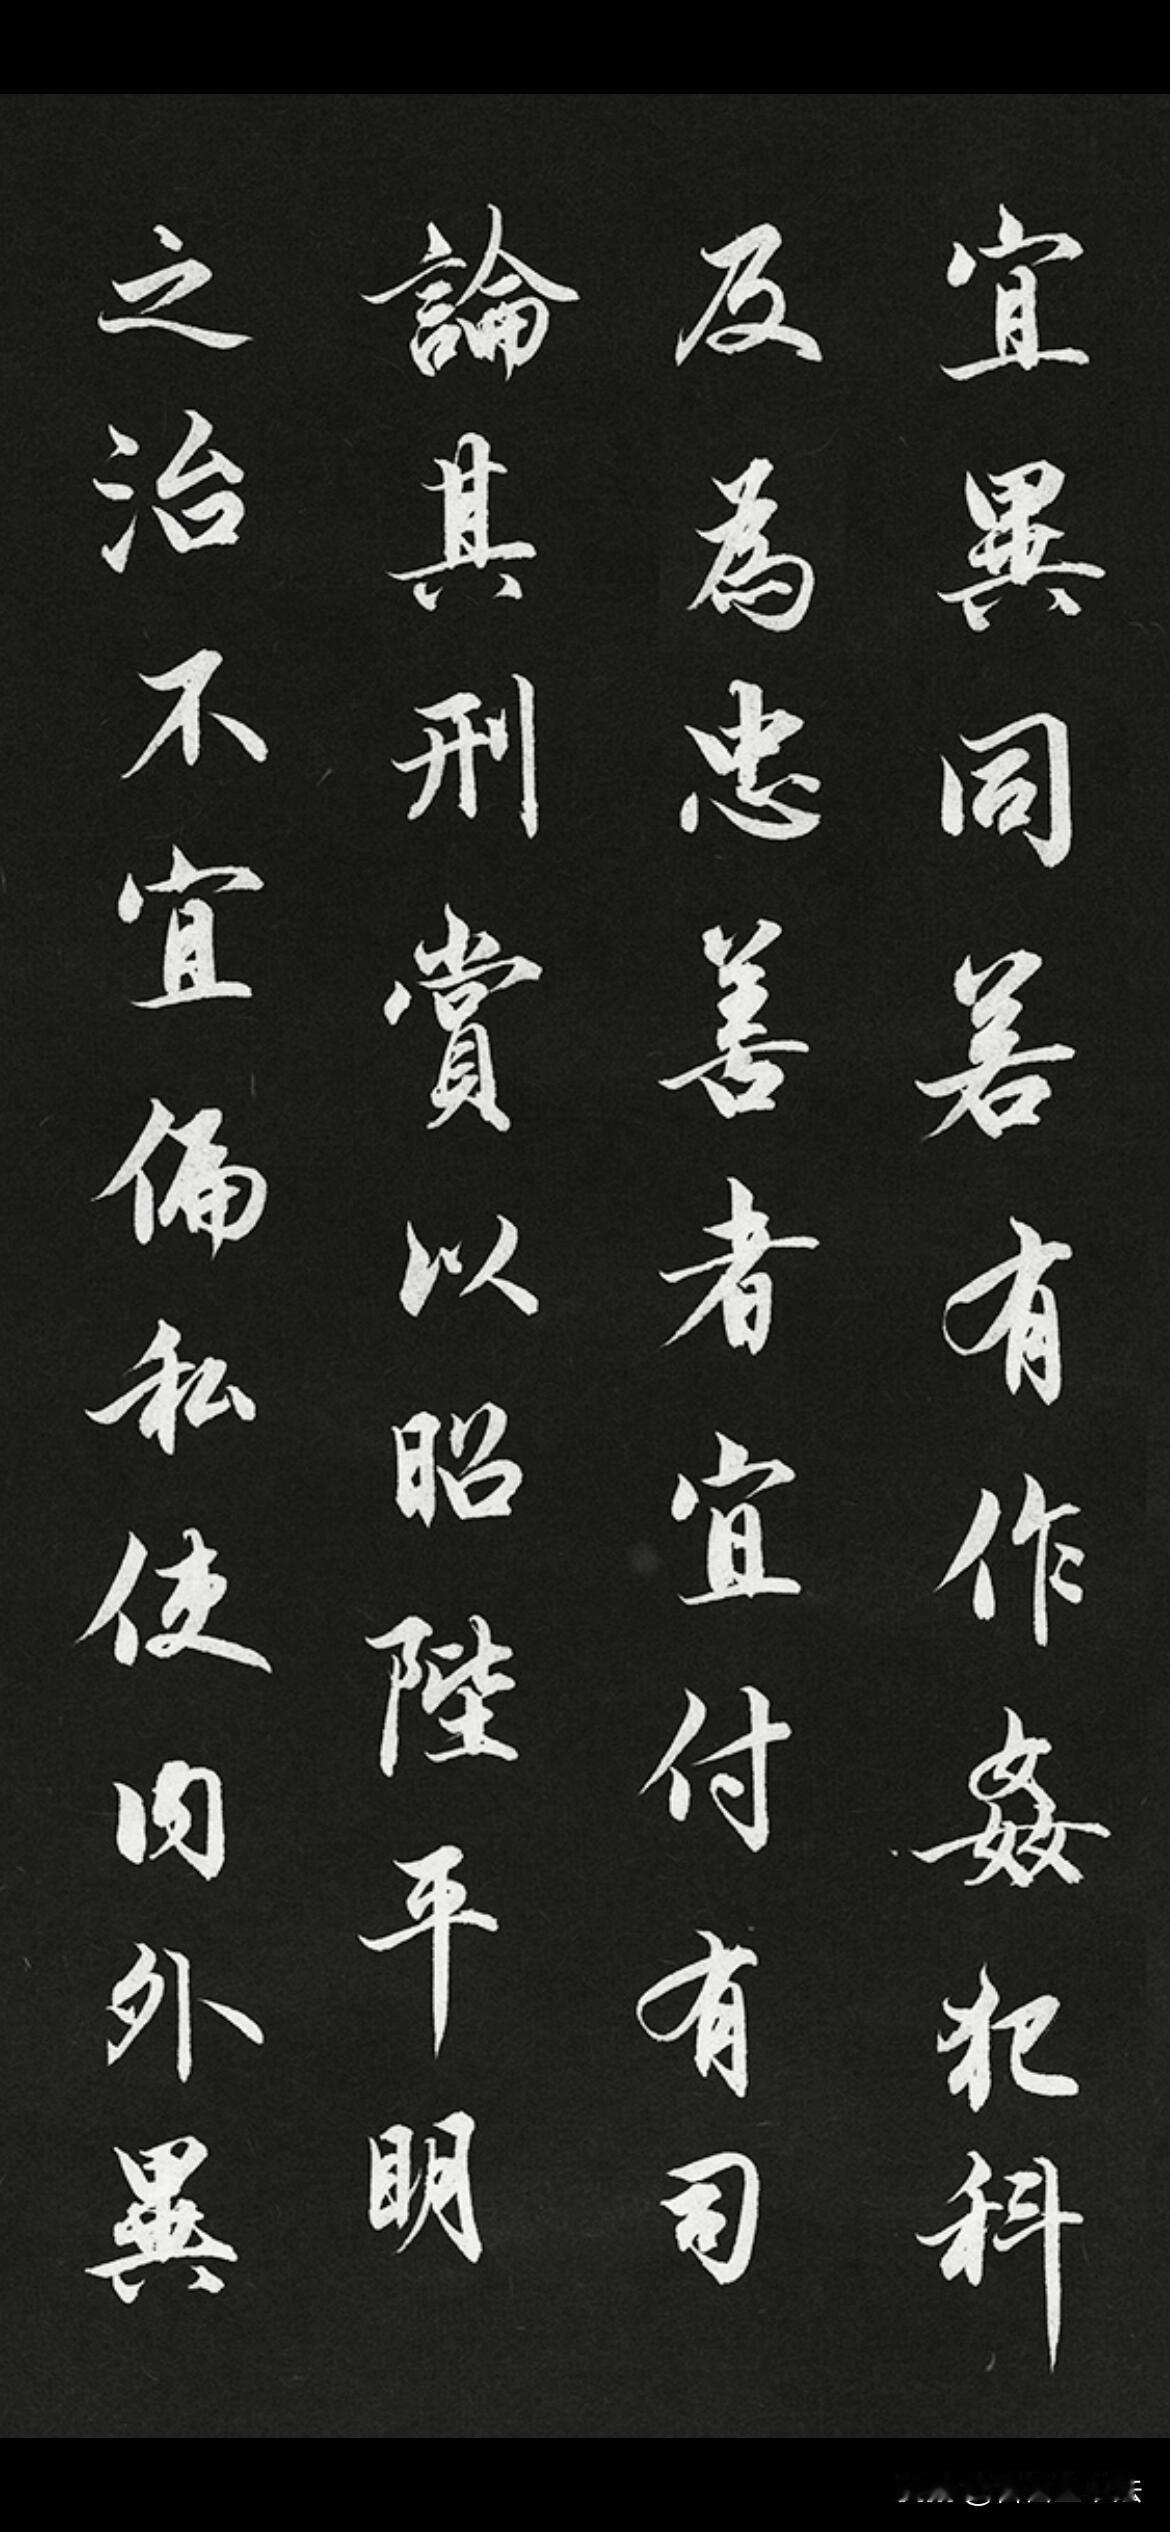 宜異同若有作姦犯科
及為忠善者宜付有司
論其刑賞以昭陛平明
之治不宜偏私使内外異